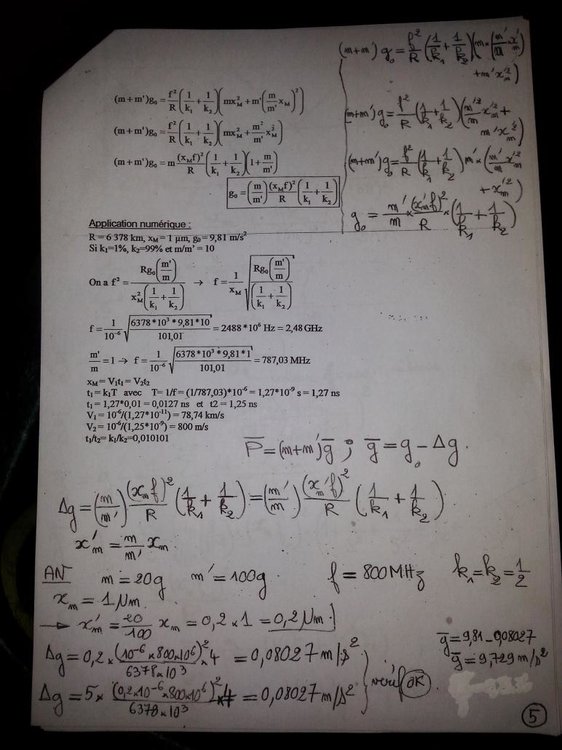 (m+m')g₀ = f²/R (1/k₁ + 1/k₂)(mx²_M + m'(m/m' x_M)²)
(m+m')g₀ = f²/R (1/k₁ + 1/k₂)(mx²_M + m²/m' x²_M)
(m+m')g₀ = m (x_M f)²/R (1/k₁ + 1/k₂)(1 + m/m')
g₀ = (m/m') (x_M f)²/R (1/k₁ + 1/k₂)
(m+m') g₀ = f²/R (1/k₁ + 1/k₂)(m × (m'/m x'_m)² + m'x'²_m)
(m+m') g₀ = f²/R (1/k₁ + 1/k₂)(m'²/m x'²_m + m'x'²_m)
(m+m') g₀ = f²/R (1/k₁ + 1/k₂) m' × (m'/m x'²_m + x'²_m)
g₀ = m'/m × (x'_m f)²/R × (1/k₁ + 1/k₂)
Application numérique :
R = 6 378 km, x_M = 1 µm, g₀ = 9,81 m/s²
Si k₁=1%, k₂=99% et m/m' = 10
On a f² = Rg₀(m'/m) / x²_M(1/k₁ + 1/k₂) → f = 1/x_M √(Rg₀(m'/m) / (1/k₁ + 1/k₂))
f = 1/10⁻⁶ √(6378*10³*9,81*10 / 101,01) = 2488*10⁶ Hz = 2,48 GHz
m'/m = 1 → f = 1/10⁻⁶ √(6378*10³*9,81*1 / 101,01) = 787,03 MHz
x_M = V₁t₁ = V₂t₂
t₁ = k₁T avec T= 1/f = (1/787,03)*10⁻⁶ = 1,27*10⁻⁹ s = 1,27 ns
t₁ = 1,27*0,01 = 0,0127 ns et t2 = 1,25 ns
V₁ = 10⁻⁶/(1,27*10⁻¹¹) = 78,74 km/s
V₂ = 10⁻⁶/(1,25*10⁻⁹) = 800 m/s
t₁/t₂= k₁/k₂=0,010101
P̅ = (m+m')g̅ ; g̅ = g₀ - Δg.
Δg = (m/m') (x_m f)²/R (1/k₁ + 1/k₂) = (m'/m) (x'_m f)²/R (1/k₁ + 1/k₂)
x'_m = m/m' x_m
AN m = 20g m' = 100g f = 800 MHz k₁=k₂=1/2
x_m = 1 µm.
→ x'_m = 20/100 x_m = 0,2 × 1 = 0,2 µm.
Δg = 0,2 × (10⁻⁶ × 800×10⁶)²/6378×10³ × 4 = 0,08027 m/s²
Δg = 5 × (0,2×10⁻⁶ × 800×10⁶)²/6378×10³ × 4 = 0,08027 m/s²
vérif OK
g̅ = 9,81 - 0,08027
g̅ = 9,729 m/s²
5